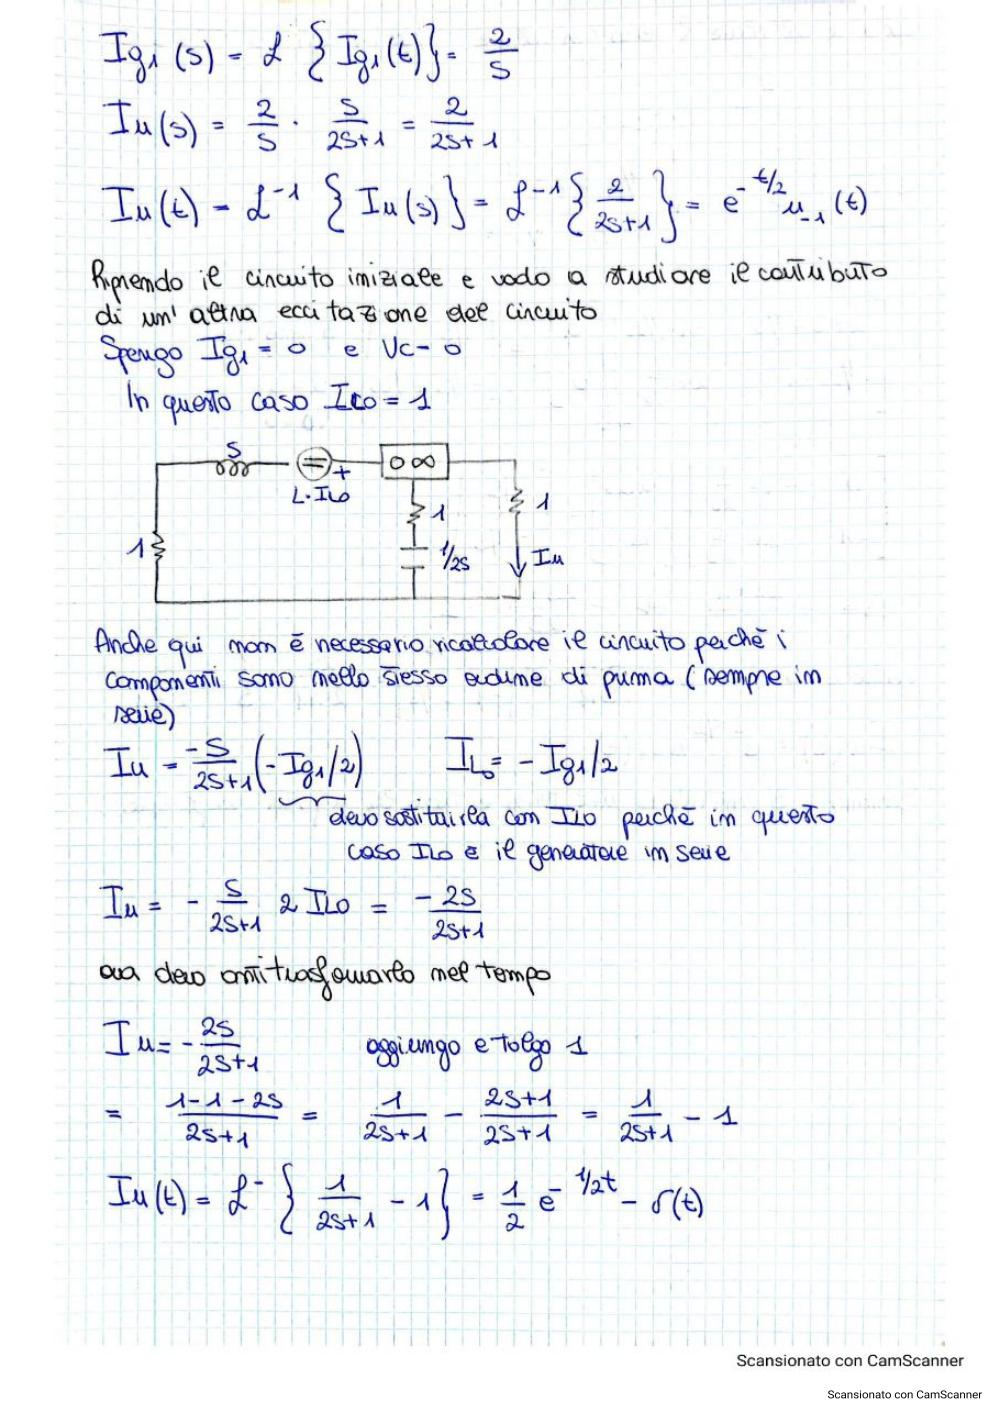 Ig₁(s) = ℒ {Ig₁(t)} = 2/s
Iu(s) = 2/s · s/2s+1 = 2/2s+1
Iu(t) = ℒ⁻¹ {Iu(s)} = ℒ⁻¹ {2/2s+1} = e^-t/2 u₋₁(t)
Riprendo il circuito iniziale e vado a studiare il contributo
di un' altra eccitazione del circuito
Spengo Ig₁ = 0 e Vc = 0
In questo caso ILo = 1
s
+
0 ∞
L·ILo
1
1
1
1/2s
Iu
Anche qui non è necessario ricalcolare il circuito perchè i
componenti sono nello stesso ordine di prima (sempre in
serie)
Iu = -s/2s+1 (-Ig₁/2) IL₀ = -Ig₁/2
devo sostituirla con ILo perchè in questo
caso ILo è il generatore in serie
Iu = - s/2s+1 2 ILo = -2s/2s+1
ora devo antitrasformarlo nel tempo
Iu = - 2s/2s+1 aggiungo e tolgo 1
= 1-1-2s/2s+1 = 1/2s+1 - 2s+1/2s+1 = 1/2s+1 - 1
Iu(t) = ℒ⁻ {1/2s+1 - 1} = 1/2 e^-1/2t - δ(t)
Scansionato con CamScanner
Scansionato con CamScanner